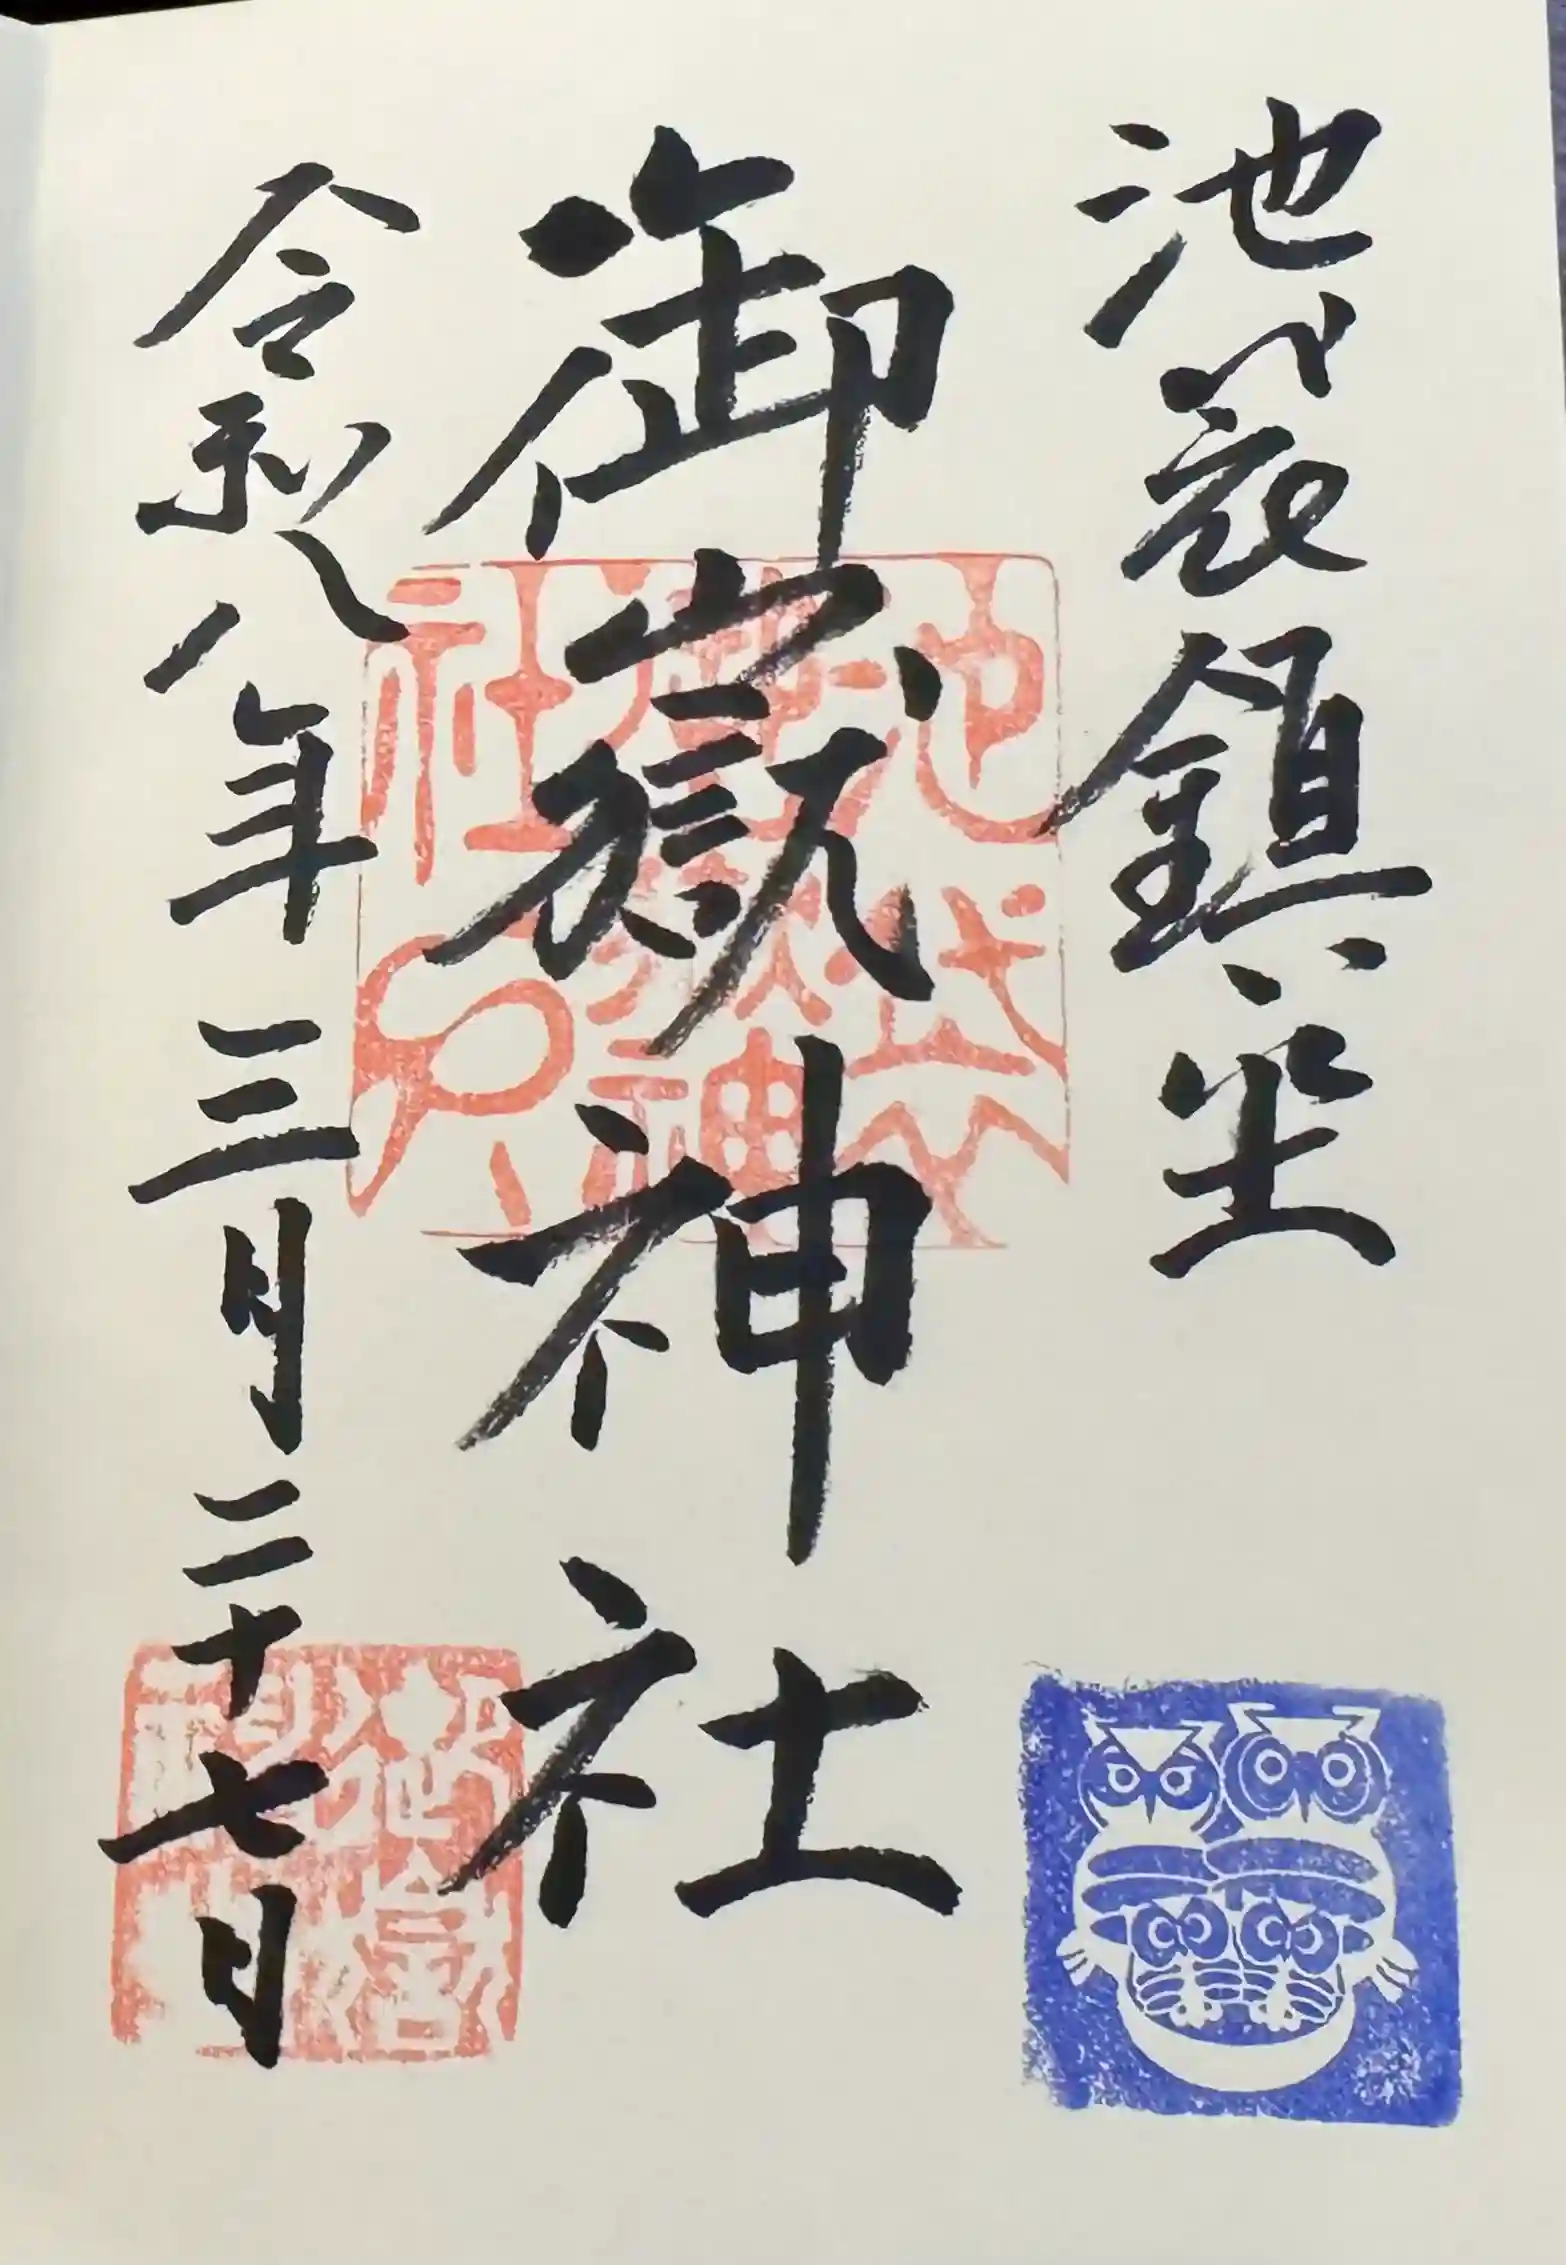 池袋鎮座
御嶽神社
令和八年三月二十七日
池袋御嶽神社之印